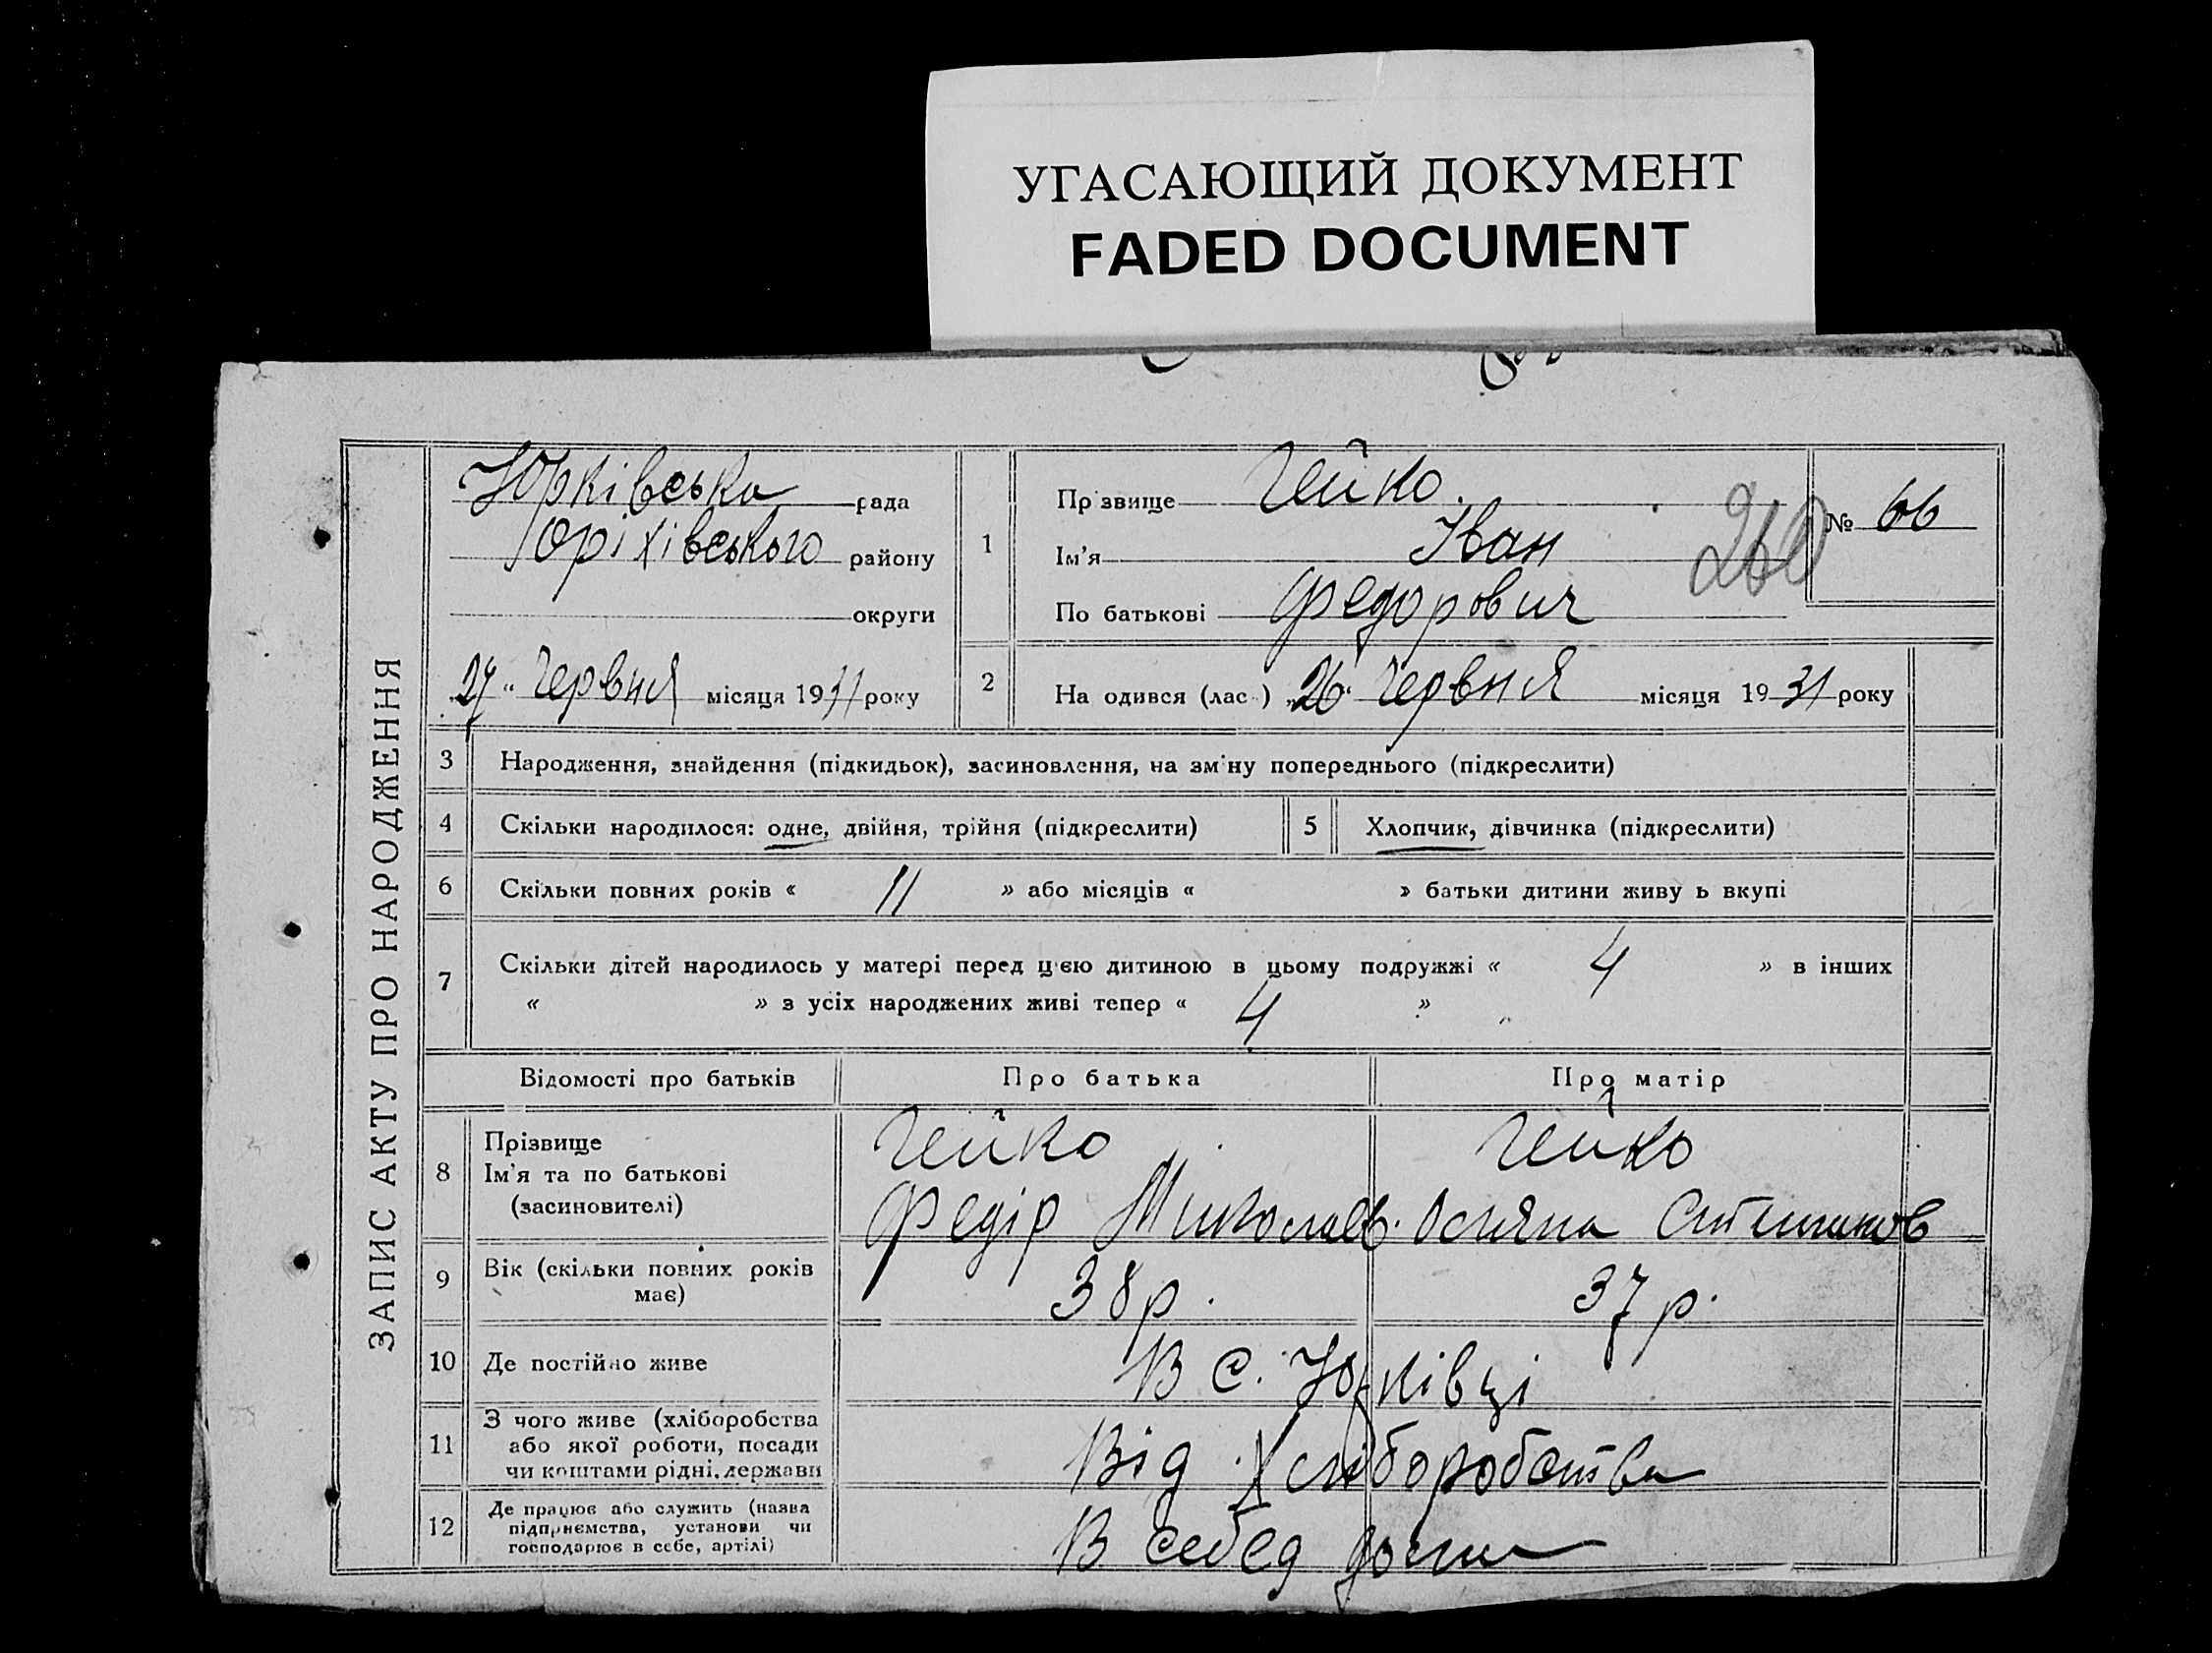 УГАСАЮЩИЙ ДОКУМЕНТ
FADED DOCUMENT
ЗАПИС АКТУ ПРО НАРОДЖЕННЯ
Юрківська рада
Оріхівського району
округи
27 " Червня місяця 1931 року
1
Прізвище Гейко.
Ім'я Іван
По батькові Федорович
260
№ 66
2
На одився (лас ) „26" Червня місяця 19 31 року
3 Народження, знайдення (підкидьок), засиновлення, на зм ну попереднього (підкреслити)
4 Скільки народилося: одне, двійня, трійня (підкреслити)
5 Хлопчик, дівчинка (підкреслити)
6 Скільки повних років « 11 » або місяців « » батьки дитини живу ь вкупі
7 Скільки дітей народилось у матері перед цією дитиною в цьому подружжі « 4 » в інших
« » з усіх народжених живі тепер « 4 »
Відомості про батьків Про батька Про матір
8 Прізвище
Ім'я та по батькові
(засиновителі)
Гейко
Федір Миколаєв.
Гейко
9 Вік (скільки повних років
має)
38 р. 37 р.
10 Де постійно живе В с. Юрківці
11 З чого живе (хліборобства
або якої роботи, посади
чи коштами рідні, держави
Від Хліборобства
12 Де працює або служить (назва
підприємства, установи чи
господарює в себе, артілі)
В себе